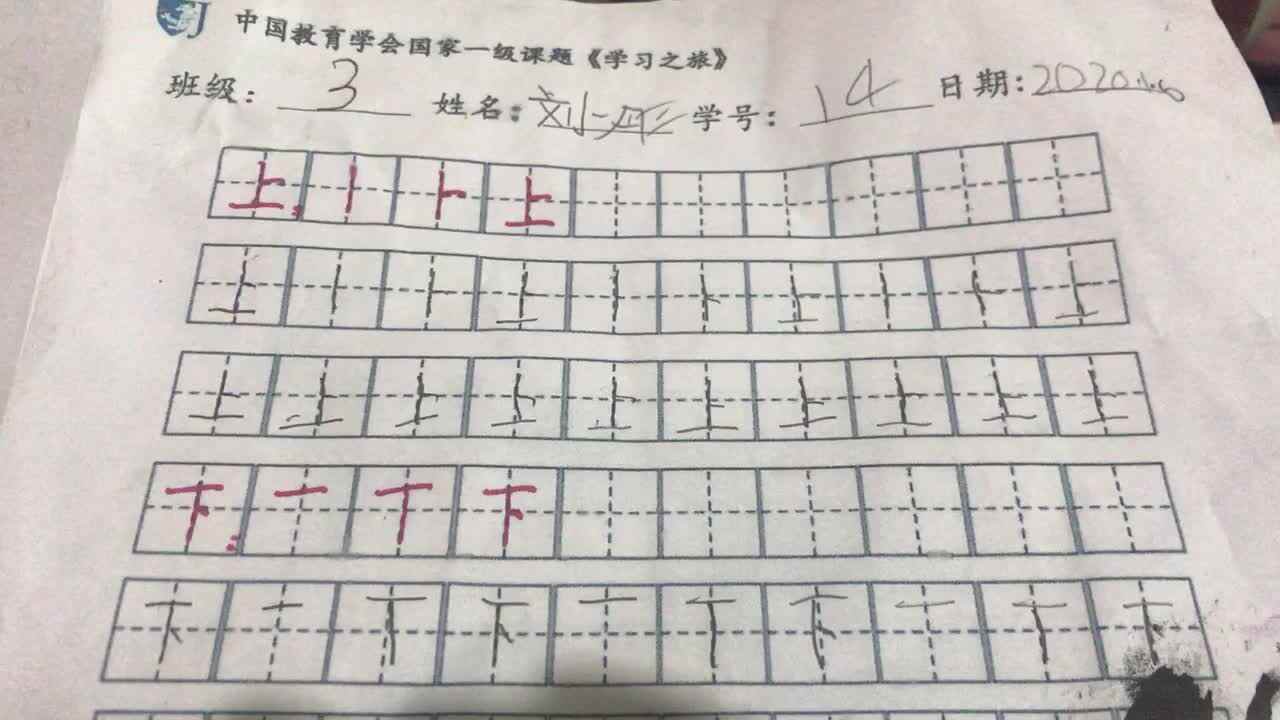 中国教育学会国家一级课题《学习之旅》
班级：3 姓名：刘二彤 学号：14 日期：2020.1.6
上：丨 ⺊ 上
上 丨 ⺊ 上 丨 ⺊ 上 丨 ⺊ 上
上 上 上 上 上 上 上 上 上 上
下：一 丅 下
下 一 丅 下 一 丅 下 一 丅 下